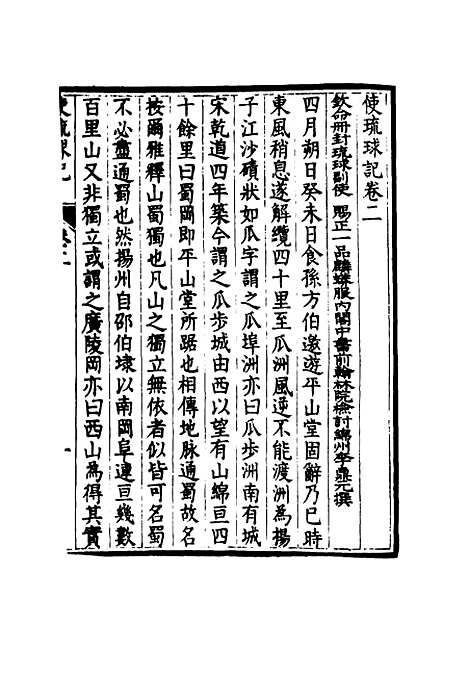 使琉球記卷二
欽命冊封琉球副使 賜正一品麟蟒服內閣中書前翰林院檢討綿州李鼎元撰
四月朔日癸未日食孫方伯邀遊平山堂固辭乃已時
東風稍息遂解纜四十里至瓜洲風逆不能渡洲為揚
子江沙磧狀如瓜字謂之瓜埠洲亦曰瓜步洲南有城
宋乾道四年築今謂之瓜步城由西以望有山綿亘四
十餘里曰蜀岡即平山堂所踞也相傳地脉通蜀故名
按爾雅釋山蜀獨也凡山之獨立無依者似皆可名蜀
不必盡通蜀也然揚州自邵伯埭以南岡阜連亘幾數
百里山又非獨立或謂之廣陵岡亦曰西山為得其實
使琉球記 卷二 一